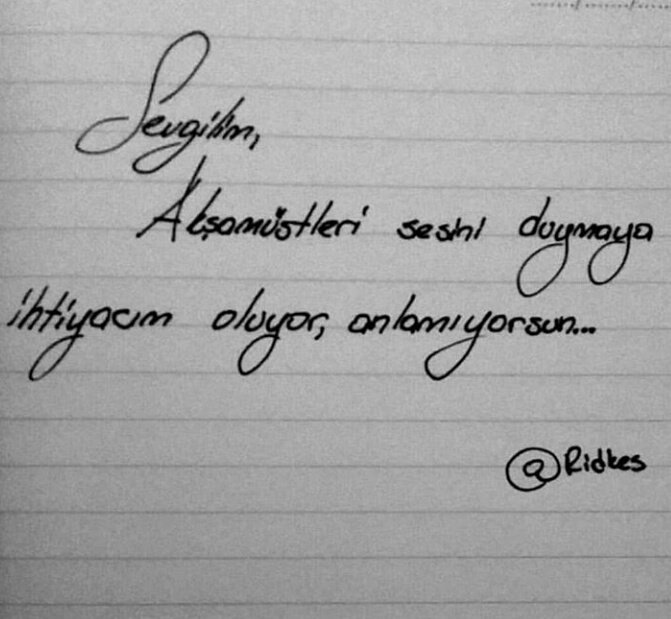 Sevgilim,
Akşamüstleri sesini duymaya
ihtiyacım oluyor, anlamıyorsun...
@Ridkes